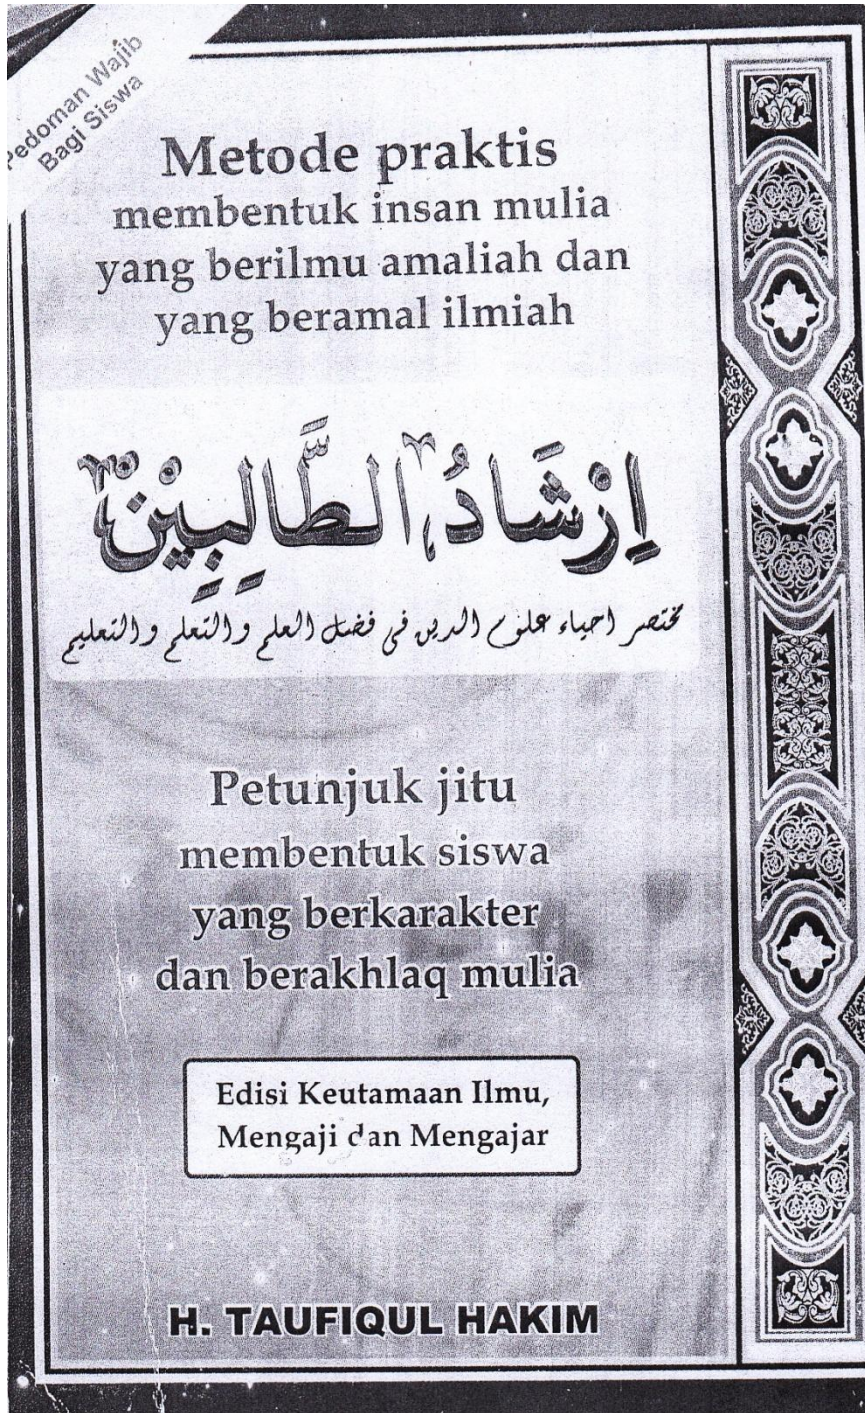 Pedoman Wajib
Bagi Siswa
Metode praktis
membentuk insan mulia
yang berilmu amaliah dan
yang beramal ilmiah
اِرْشَادُ الطَّالِبِيْنَ
مختصر احياء علوم الدين في فضل العلم والتعلم والتعليم
Petunjuk jitu
membentuk siswa
yang berkarakter
dan berakhlaq mulia
Edisi Keutamaan Ilmu,
Mengaji dan Mengajar
H. TAUFIQUL HAKIM